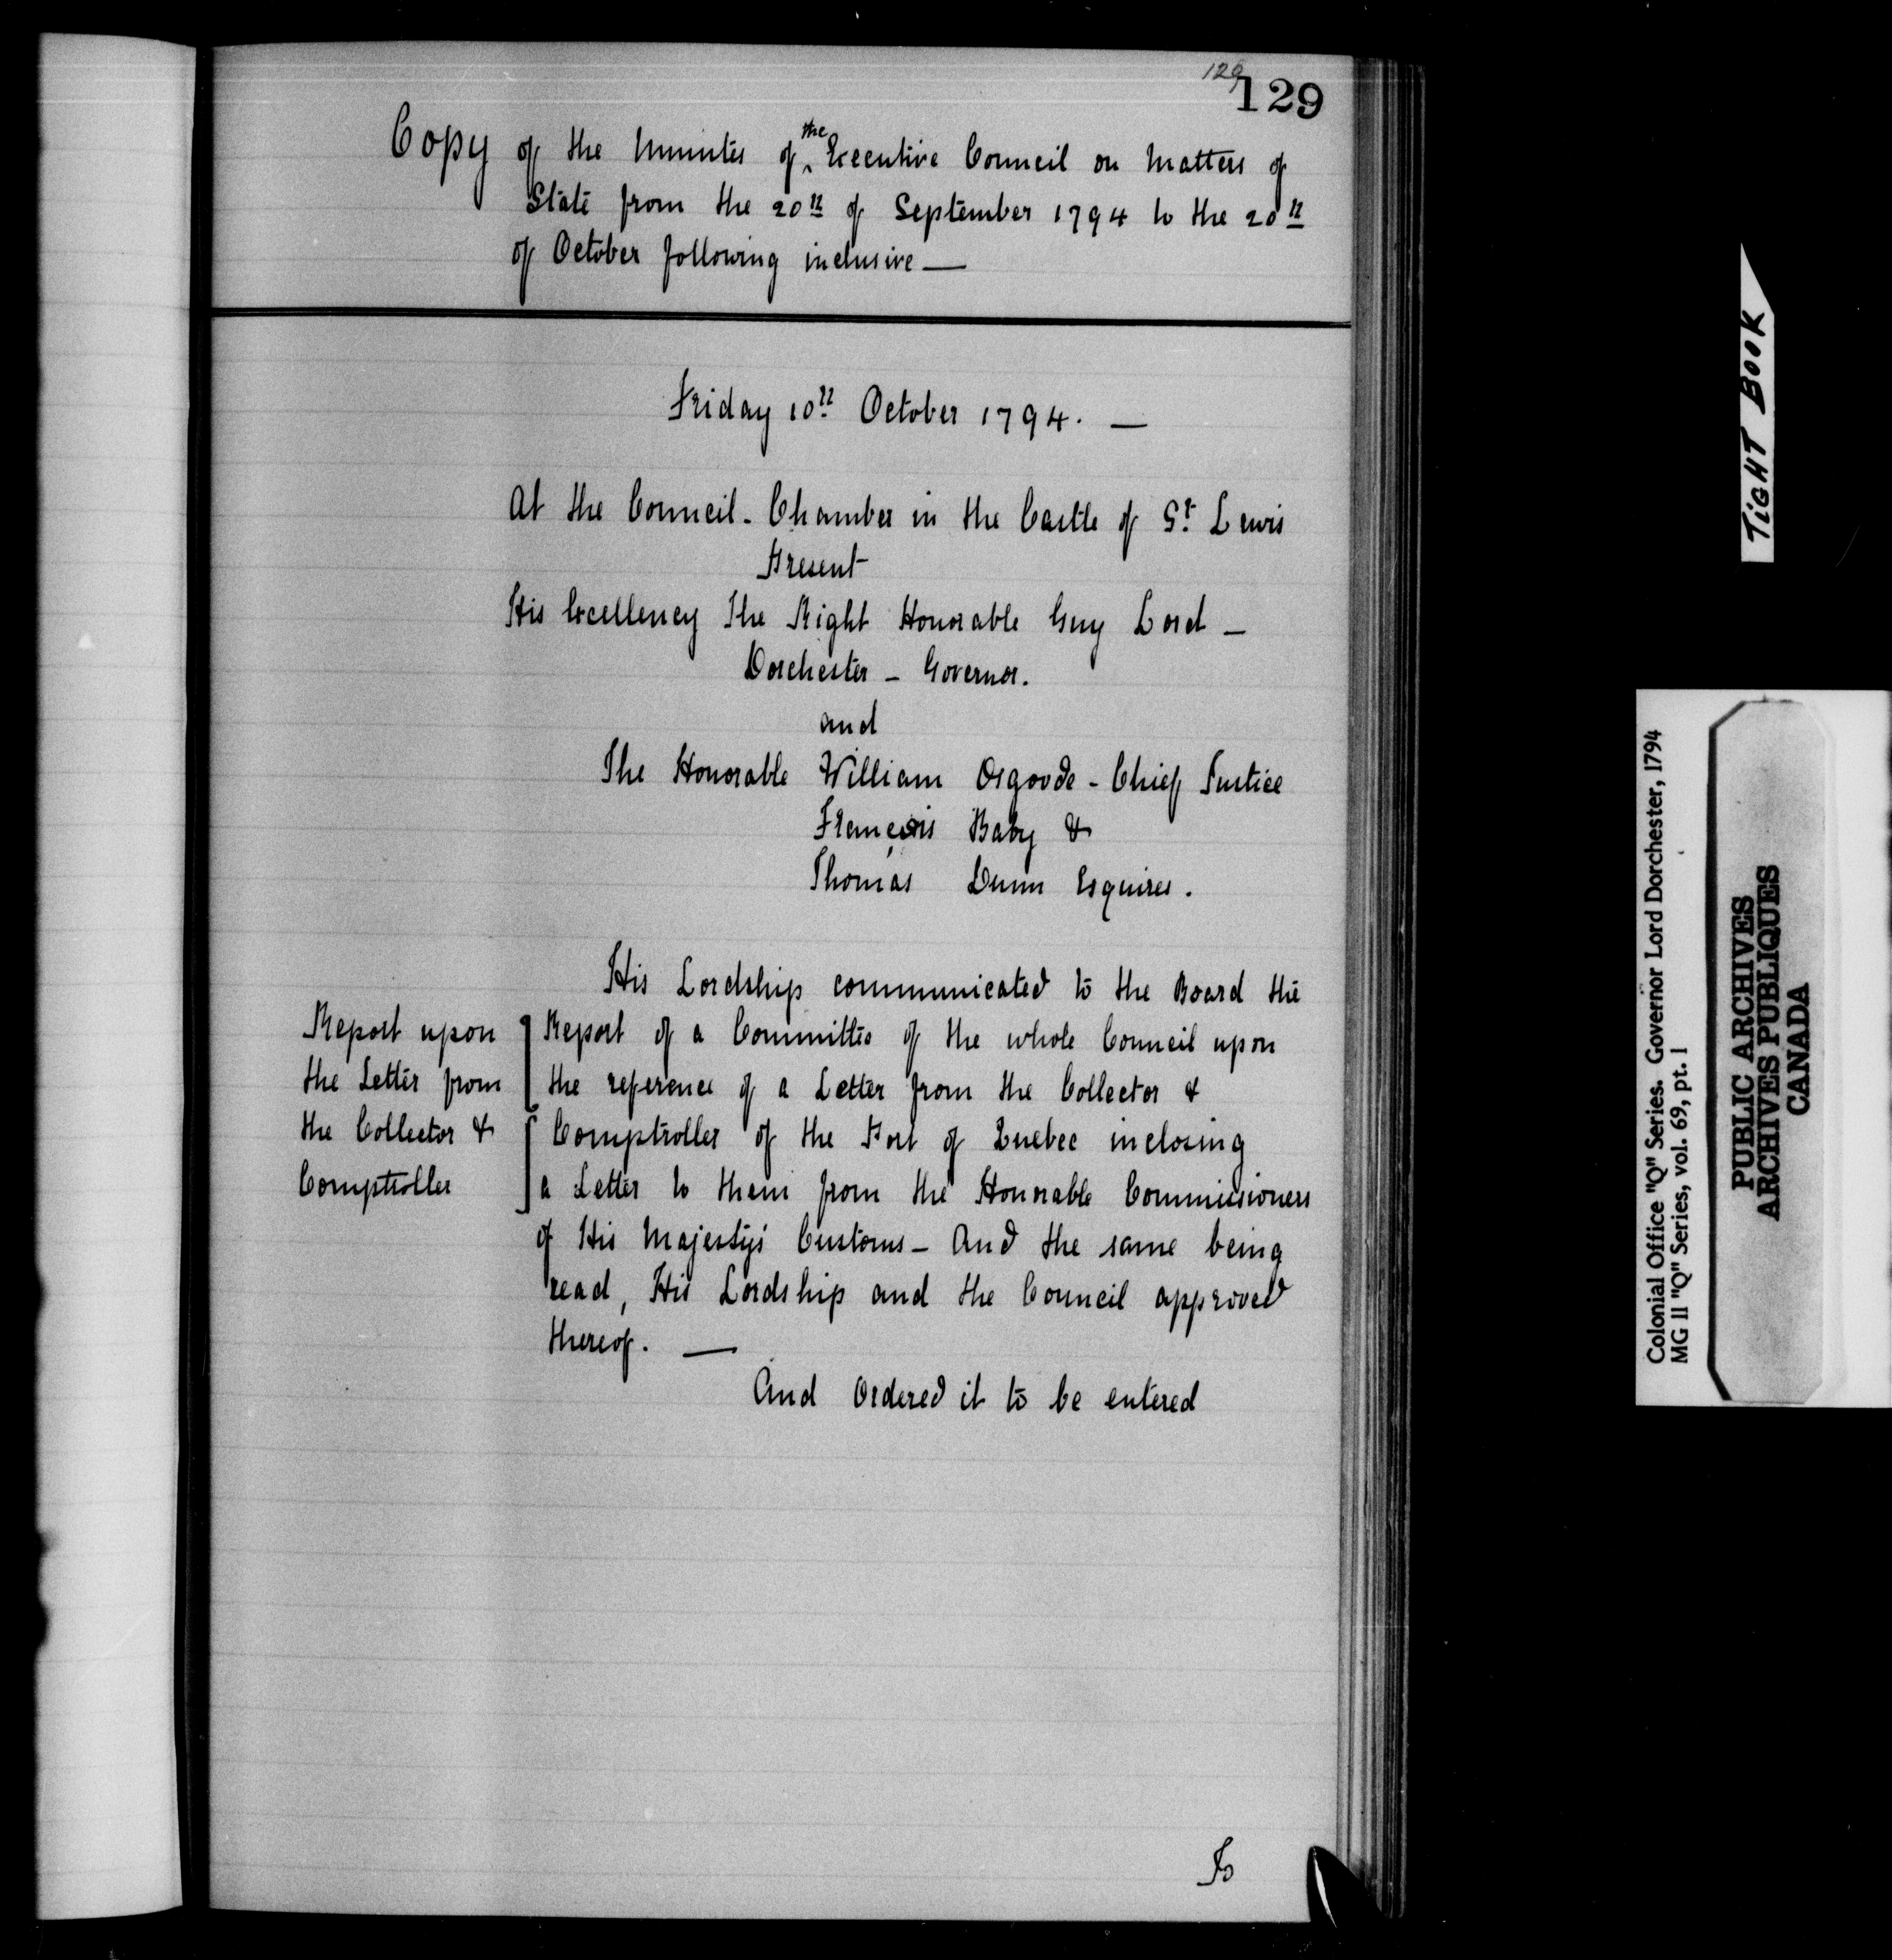 129
129
Copy of the Minutes of the Executive Council on Matters of
State from the 20th of September 1794 to the 20th
of October following inclusive —
Friday 10th October 1794. —
At the Council-Chamber in the Castle of St Lewis
Present
His Excellency The Right Honorable Guy Lord —
Dorchester — Governor.
and
The Honorable William Osgoode - Chief Justice
François Baby &
Thomas Dunn Esquires.
His Lordship communicated to the Board the
Report of a Committee of the whole Council upon
the reference of a Letter from the Collector &
Comptroller of the Port of Quebec inclosing
a Letter to them from the Honorable Commissioners
of His Majesty's Customs — And the same being
read, His Lordship and the Council approved
thereof. —
And Ordered it to be entered
Report upon
the Letter from
the Collector &
Comptroller
To
TIGHT BOOK
Colonial Office "Q" Series. Governor Lord Dorchester, 1794
MG 11 "Q" Series, vol. 69, pt. 1
PUBLIC ARCHIVES
ARCHIVES PUBLIQUES
CANADA